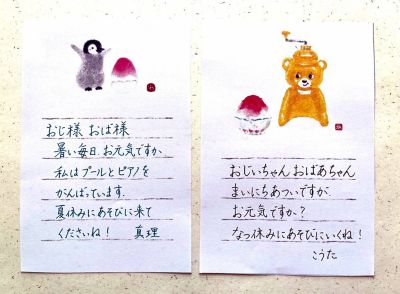 おじ様 おば様
暑い毎日、お元気ですか
私はプールとピアノを
がんばっています。
夏休みにあそびに来て
くださいね！ 真理
おじいちゃん おばあちゃん
まいにちあついですが、
お元気ですか？
なつ休みにあそびにいくね！
こうた